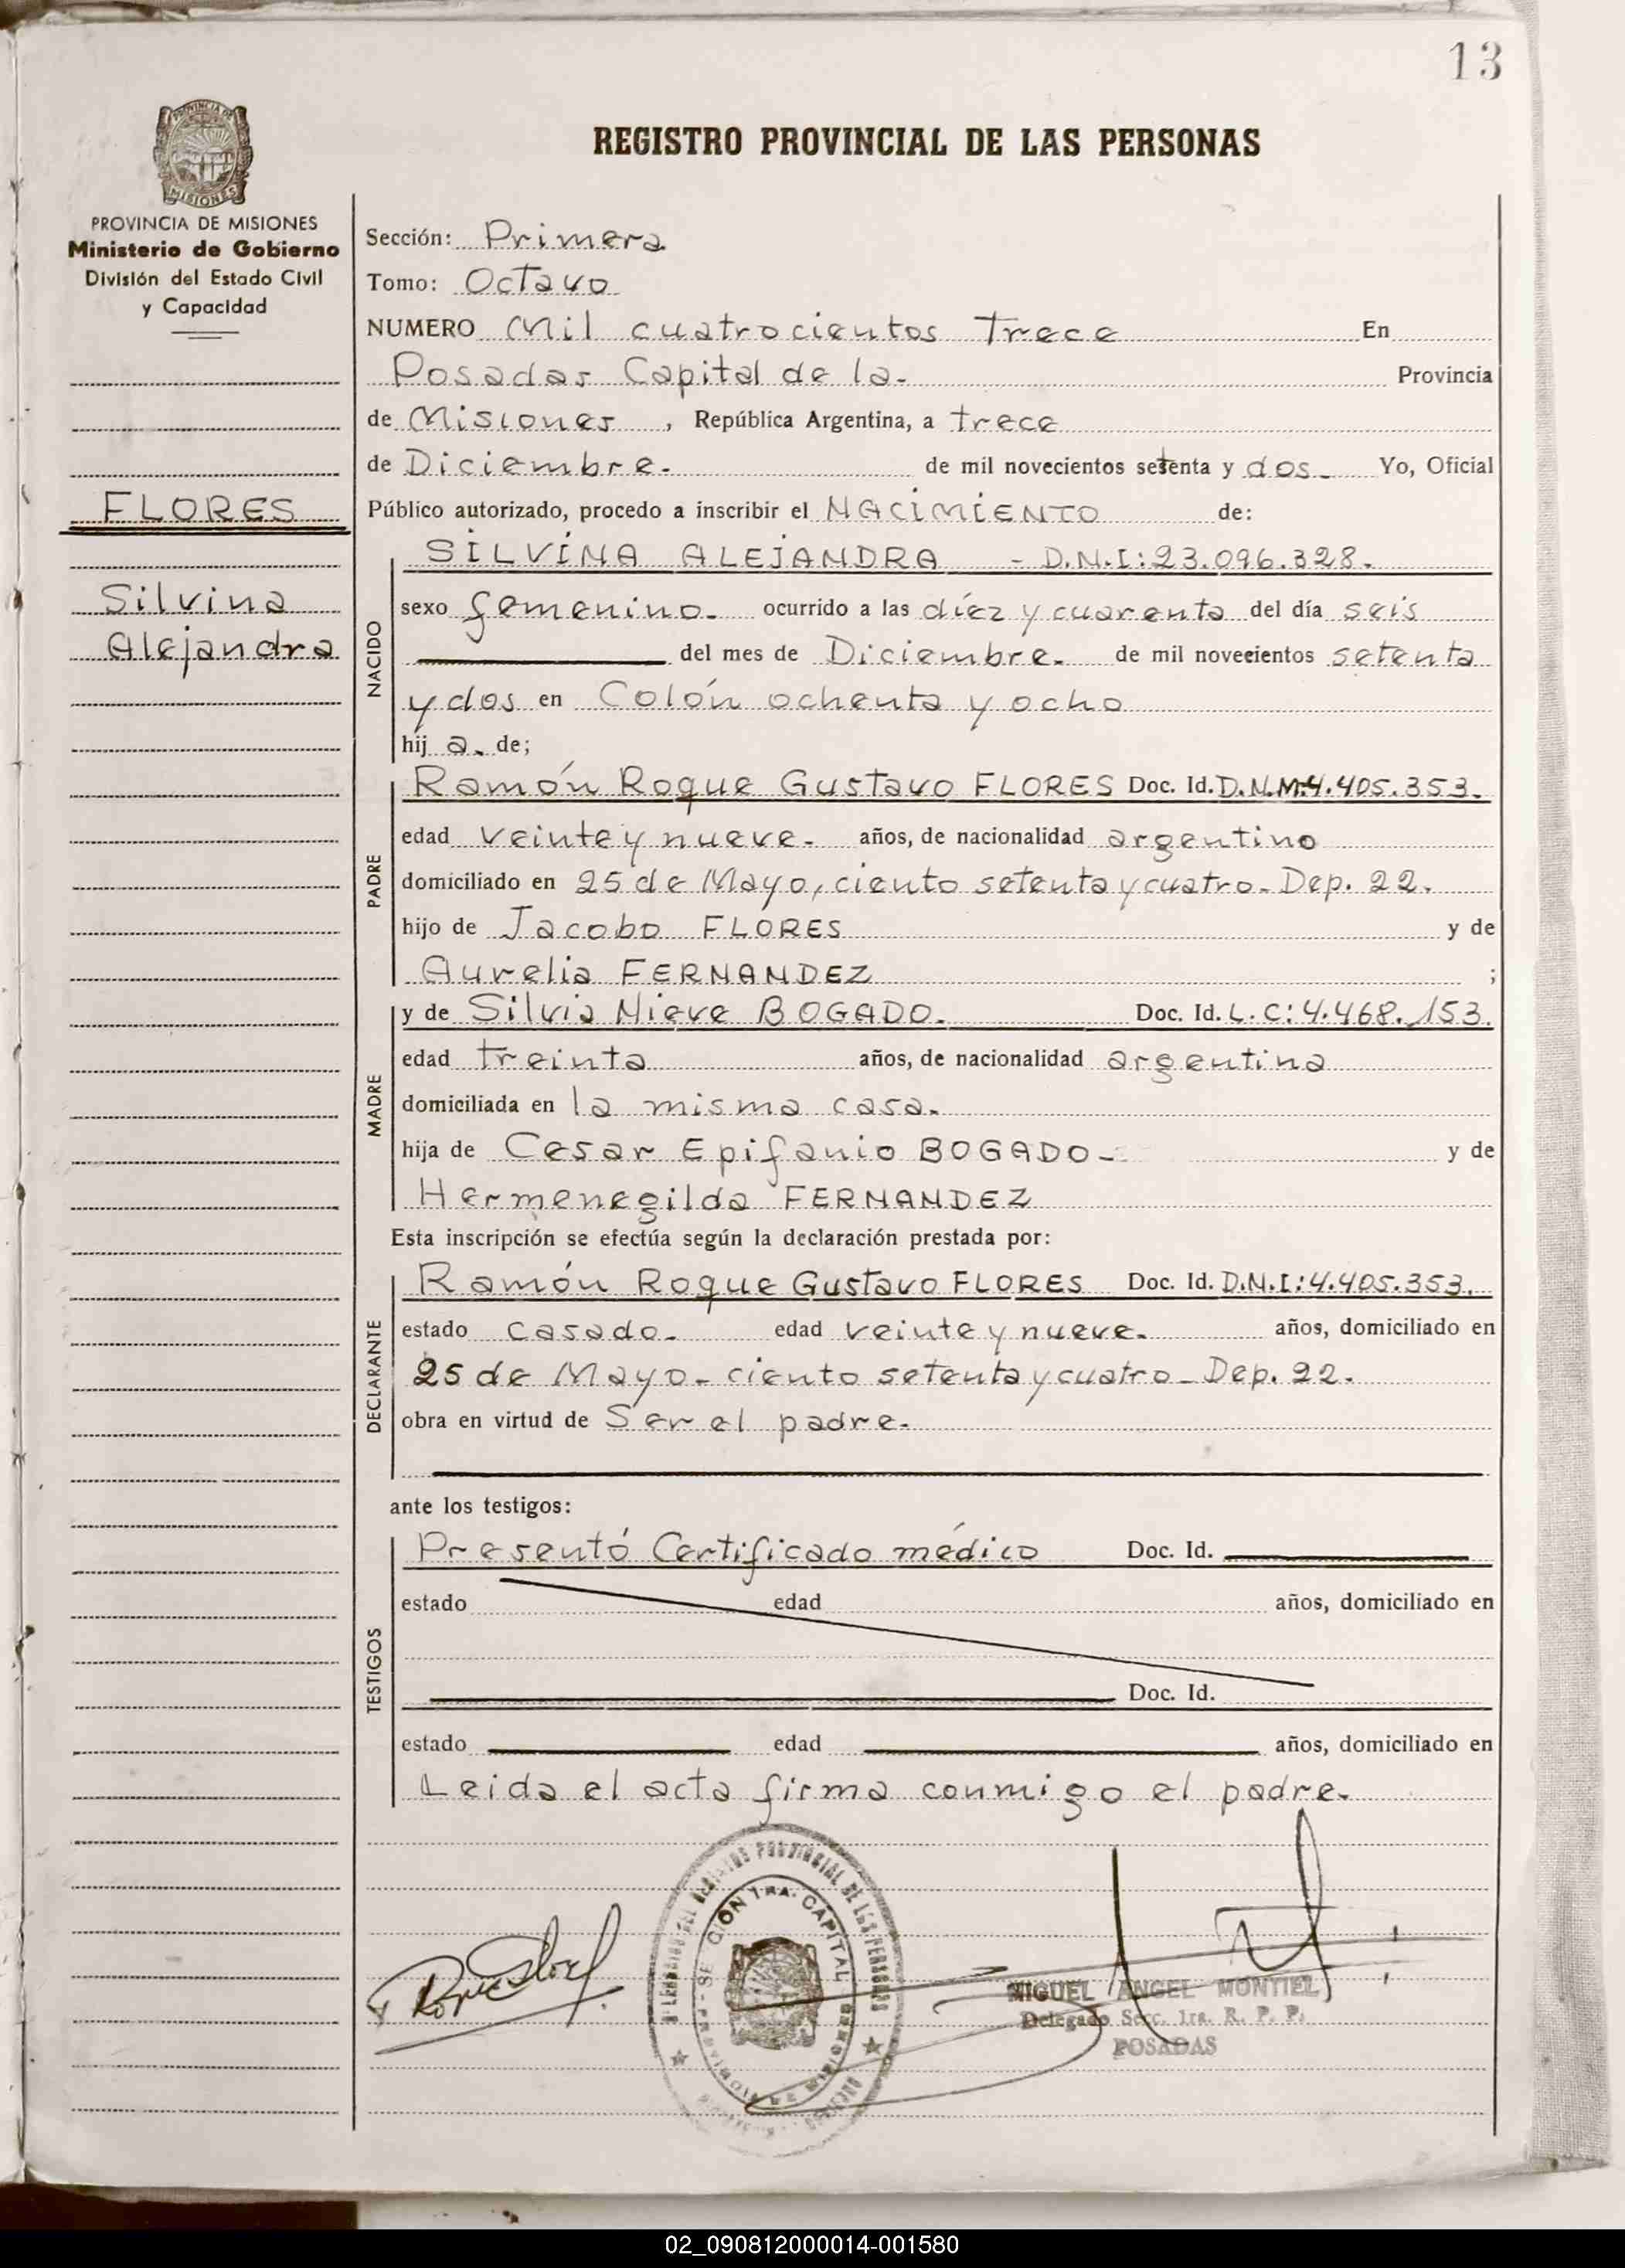 13
PROVINCIA DE
MISIONES
REGISTRO PROVINCIAL DE LAS PERSONAS
PROVINCIA DE MISIONES
Ministerio de Gobierno
División del Estado Civil
y Capacidad
FLORES
Silvina
Alejandra
Sección: Primera
Tomo: Octavo
NUMERO Mil cuatrocientos Trece En
Posadas Capital de la- Provincia
de Misiones, República Argentina, a trece
de Diciembre- de mil novecientos setenta y dos- Yo, Oficial
Público autorizado, procedo a inscribir el NACIMIENTO de:
NACIDO
SILVINA ALEJANDRA - D.N.I:23.096.328-
sexo femenino- ocurrido a las díez y cuarenta del día seis
del mes de Diciembre- de mil novecientos setenta
y dos en Colón ochenta y ocho
hij a- de;
PADRE
Ramón Roque Gustavo FLORES Doc. Id. 4.405.353.
edad veinte y nueve- años, de nacionalidad argentino
domiciliado en 25 de Mayo, ciento setenta y cuatro- Dep. 22.
hijo de Jacobo FLORES y de
Aurelia FERNANDEZ ;
MADRE
y de Silvia Nieve BOGADO- Doc. Id. L.C:4.468.153.
edad treinta años, de nacionalidad argentina
domiciliada en la misma casa-
hija de Cesar Epifanio BOGADO- y de
Hermenegilda FERNANDEZ
Esta inscripción se efectúa según la declaración prestada por:
DECLARANTE
Ramón Roque Gustavo FLORES Doc. Id. D.N.I:4.405.353.
estado casado- edad veinte y nueve- años, domiciliado en
25 de Mayo- ciento setenta y cuatro- Dep. 22-
obra en virtud de Ser el padre-
ante los testigos:
TESTIGOS
Presentó Certificado médico Doc. Id.
estado edad años, domiciliado en
Doc. Id.
estado edad años, domiciliado en
Leida el acta firma conmigo el padre-
PROVINCIAL DE LAS PERSONAS
1RA. CAPITAL
MIGUEL ANGEL MONTIEL
Delegado Secc. 1ra. R. P. P.
POSADAS
02_090812000014-001580